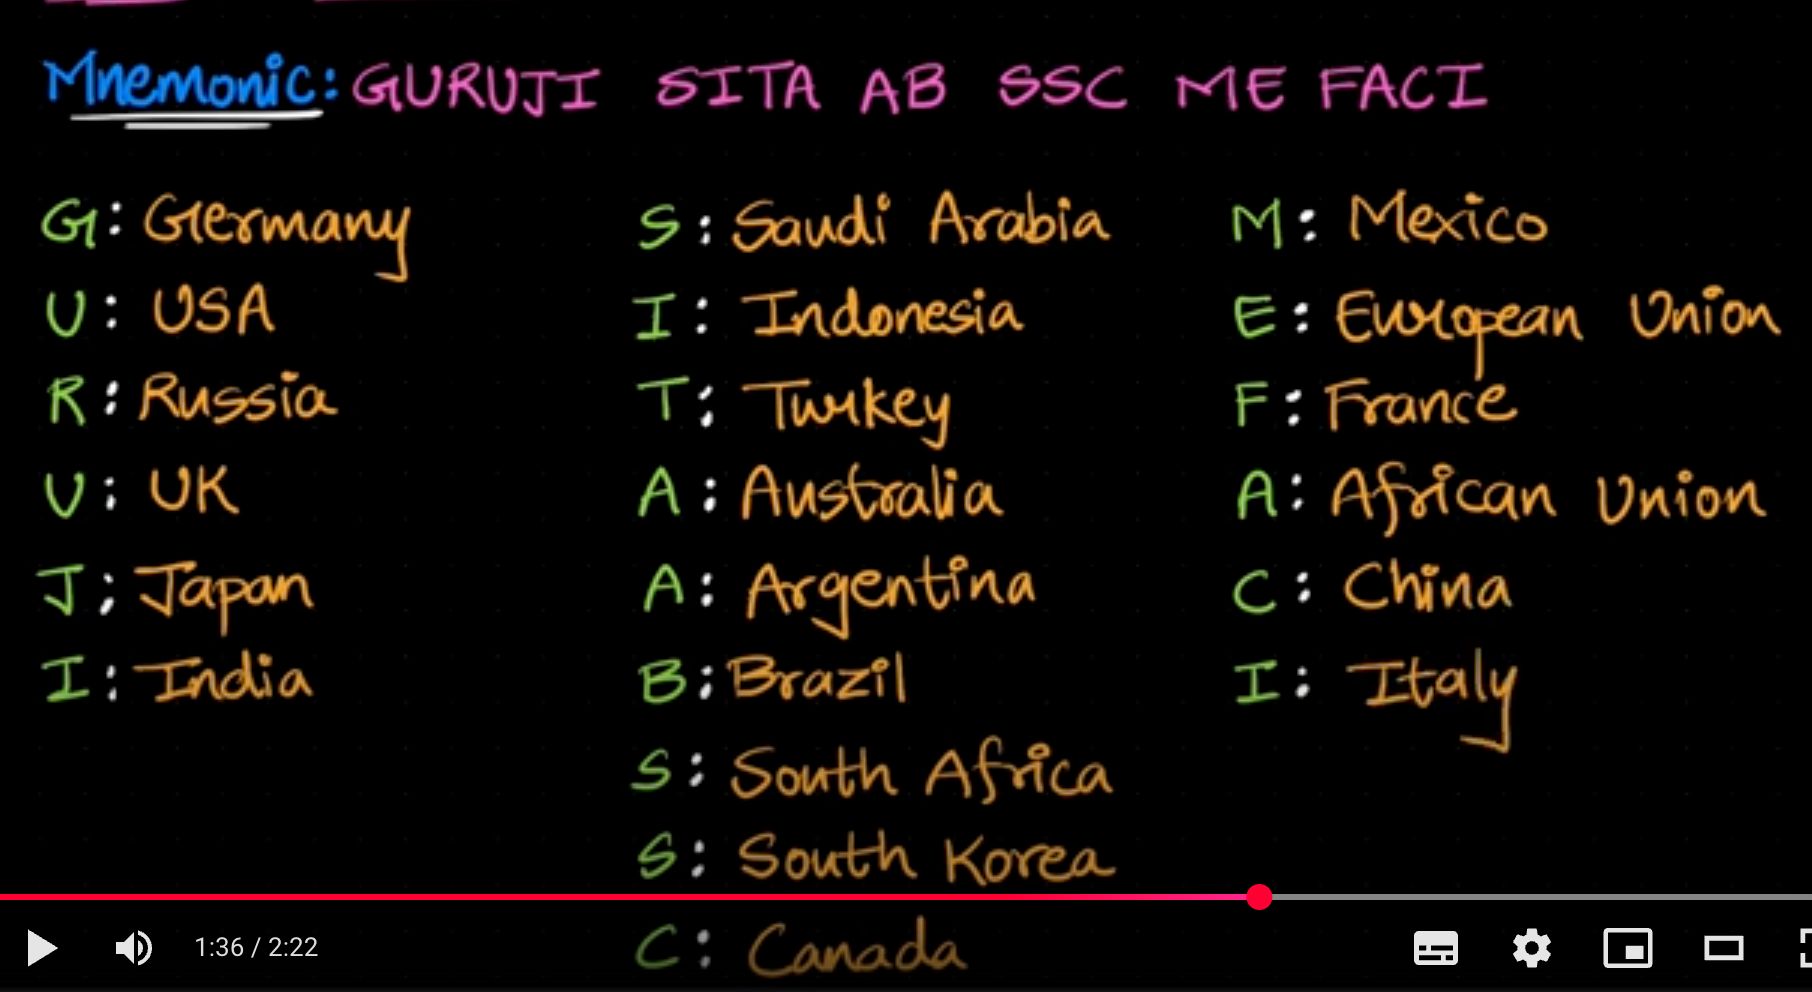 Mnemonic: GURUJI SITA AB SSC ME FACI
G: Germany
U: USA
R: Russia
U: UK
J: Japan
I: India
S: Saudi Arabia
I: Indonesia
T: Turkey
A: Australia
A: Argentina
B: Brazil
S: South Africa
S: South Korea
C: Canada
M: Mexico
E: European Union
F: France
A: African Union
C: China
I: Italy
1:36 / 2:22